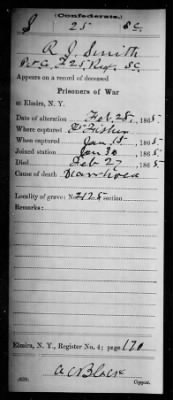 (Confederate.)
S 25 S.C.
R. J. Smith
Pvt Co. I 25 Reg. S.C.
Appears on a record of deceased
Prisoners of War
at Elmira, N. Y.
Date of alteration Feb. 28, 1865
Where captured Ft Fisher
When captured Jan. 15, 1865
Joined station Jan 30, 1865
Died Feb 27, 1865
Cause of death Diarrhoea
Locality of grave: No 2125 section
Remarks:
Elmira, N. Y., Register No. 4; page 170
A C Black
Copyist.